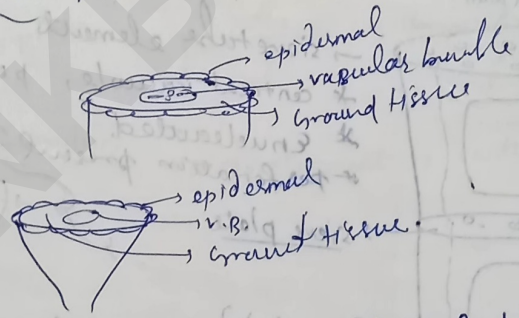 epidermal
vascular bundle
Ground tissue
epidermal
V.B.
Ground tissue